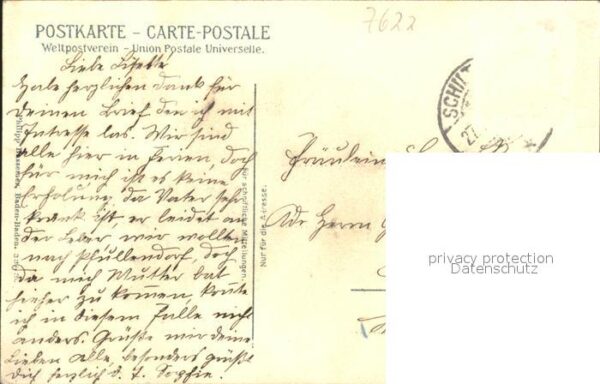 7622
POSTKARTE – CARTE-POSTALE
Weltpostverein – Union Postale Universelle.
Liebe Lisette
Habe herzlichen Dank für
deinen Brief den ich mit
Intresse las. Wir sind
alle hier in Ferien, doch
für mich ist es keine
Erholung, da Vater sehr
krank ist, er leidet an
der Leber, wir wollten
nach Pfullendorf, doch
da mich Mutter bat
hieher zu kommen, konnte
ich in diesem Falle nicht
anders. Grüße mir deine
Lieben alle, besonders grüßt
dich herzlich d. t. Sophie.
Baden-Baden.
für schriftliche Mitteilungen.
Nur für die Adresse.
SCHIL
27
Fräulein
Adr Herrn
privacy protection
Datenschutz